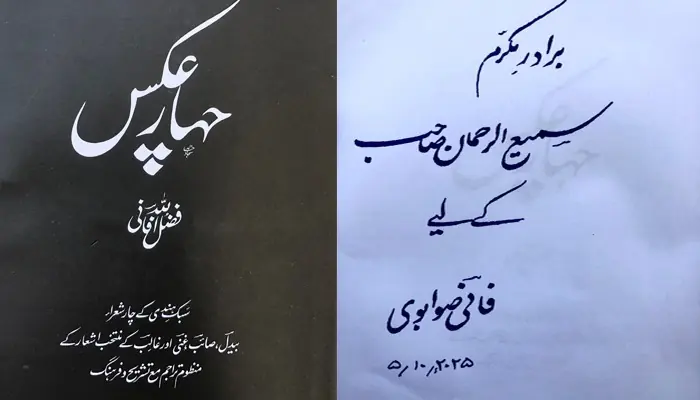 چہار عکس
فضل اللہ فانی
سبک ہندی کے چار شعراء
بیدل، صائب، غنی اور غالب کے منتخب اشعار کے
منظوم تراجم مع تشریح و فرہنگ
برادرِ مکرم
سمیع الرحمان صاحب
کے لیے
فانی صوابوی
۵/۱۰/۲۰۲۵ء